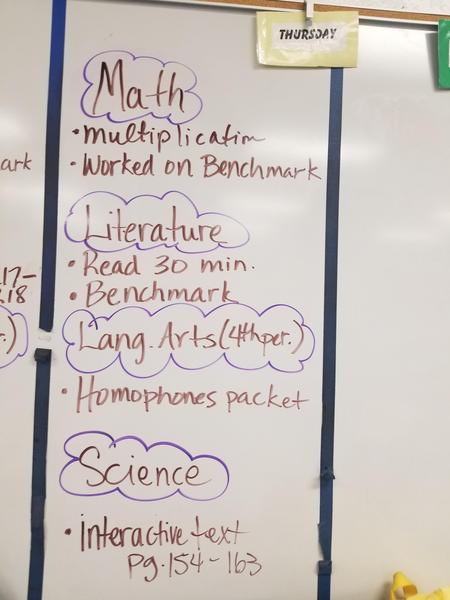 THURSDAY
Math
• multiplication
• Worked on Benchmark
ark
Literature
• Read 30 min.
• Benchmark
17-
18
Lang. Arts (4th per.)
r.)
• Homophones packet
Science
• interactive text
pg. 154-163